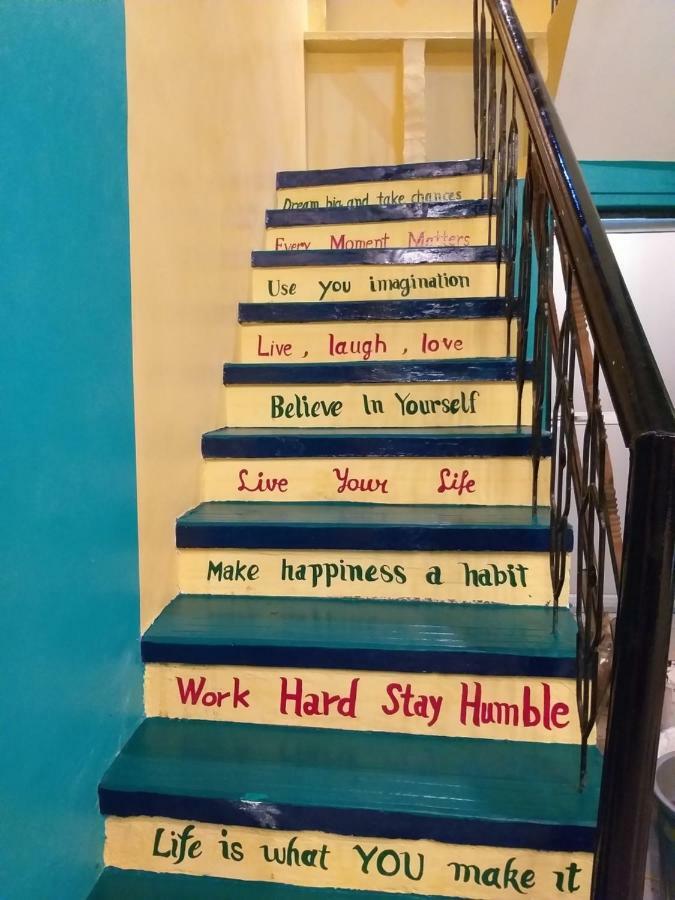 Dream big and take chances
Every Moment Matters
Use you imagination
Live, laugh, love
Believe In Yourself
Live Your Life
Make happiness a habit
Work Hard Stay Humble
Life is what YOU make it